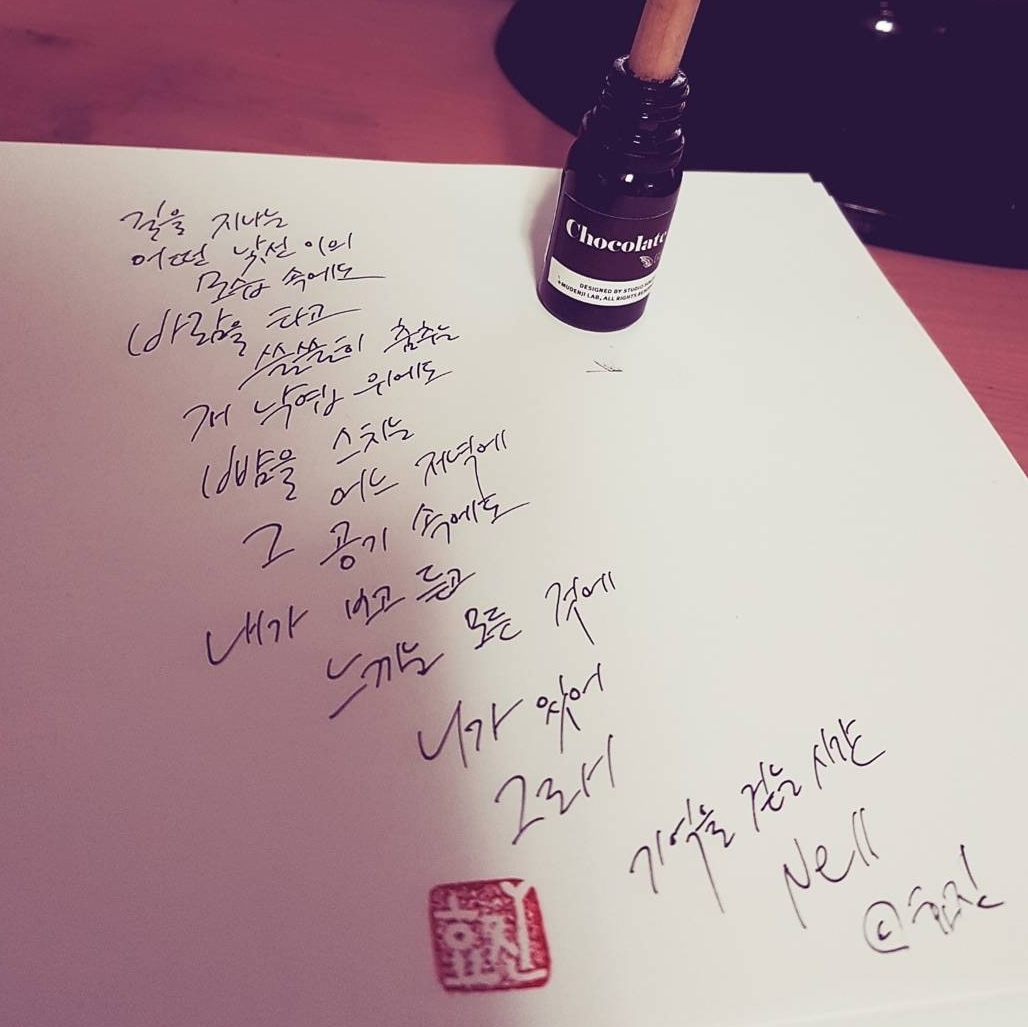 Chocolate
DESIGNED BY STUDIO
MUDENJI LAB, ALL RIGHTS
길을 지나는
어떤 낯선 이의
모습 속에도
바람을 타고
쓸쓸히 춤추는
저 낙엽 위에도
뺨을 스치는
어느 저녁에
그 공기 속에도
내가 보고 듣고
느끼는 모든 것에
니가 있어
그래
기억을 걷는 시간
Nell